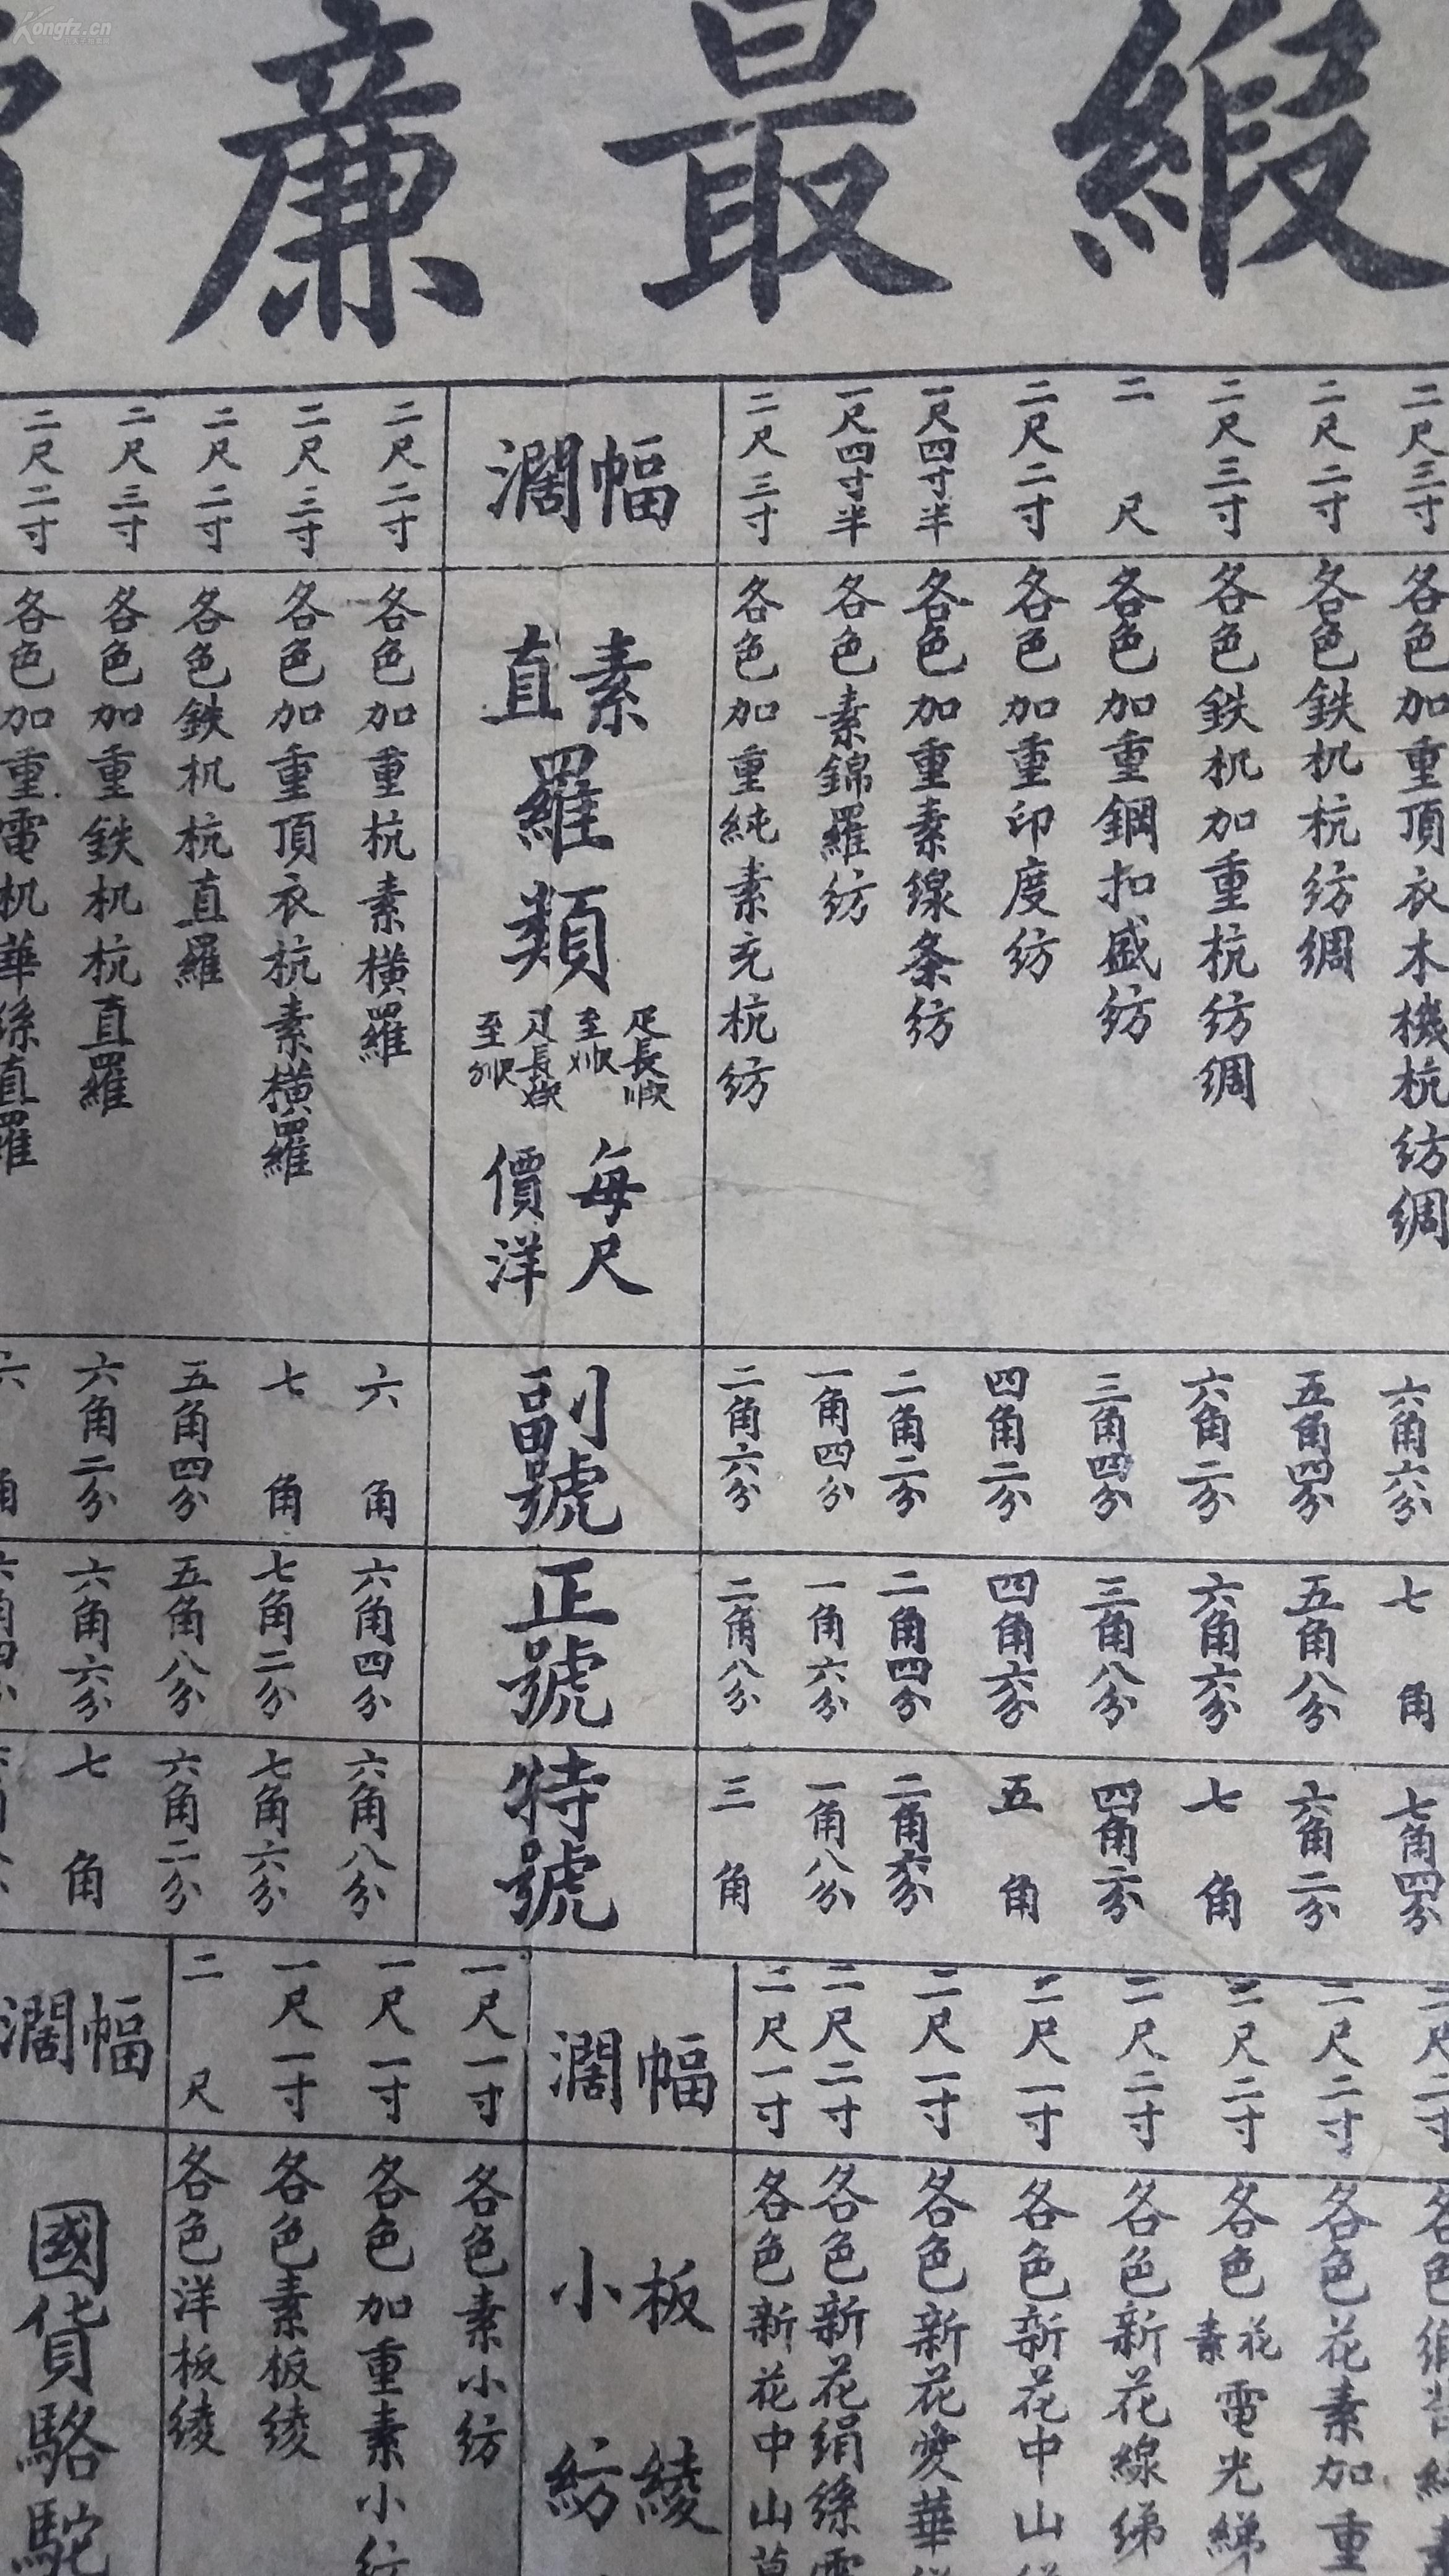 Kongfz.cn
緞最廉
二尺三寸
各色加重頂衣木機杭纺绸
六角六分
七角
七角四分
二尺二寸
各色鉄机杭纺绸
五角四分
五角八分
六角二分
二尺三寸
各色鉄机加重杭纺绸
六角二分
六角六分
七角
二尺
各色加重鋼扣盛纺
三角四分
三角八分
四角二分
二尺二寸
各色加重印度纺
四角二分
四角六分
五角
一尺四寸半
各色加重素線条纺
二角二分
二角四分
二角六分
一尺四寸半
各色素錦羅纺
一角四分
一角六分
一角八分
二尺三寸
各色加重純素充杭纺
二角六分
二角八分
三角
幅濶
素直羅類
每尺價洋
副號
正號
特號
二尺二寸
各色加重杭素橫羅
六角
六角四分
六角八分
二尺三寸
各色加重頂衣杭素橫羅
七角
七角二分
七角六分
二尺二寸
各色鉄机杭直羅
五角四分
五角八分
六角二分
二尺三寸
各色加重鉄机杭直羅
六角二分
六角六分
七角
二尺二寸
各色加重電机華絲直羅
六角
六角四分
二尺二寸
各色
二尺二寸
各色花素加重
二尺二寸
各色花素電光綈
二尺二寸
各色新花線绨
二尺一寸
各色新花中山
二尺一寸
各色新花愛華
二尺二寸
各色新花絹絲
二尺一寸
各色新花中山
幅濶
板小
綾紡
一尺一寸
各色素小纺
一尺一寸
各色加重素小纺
一尺一寸
各色素板绫
二尺
各色洋板绫
幅濶
國貨駱駝